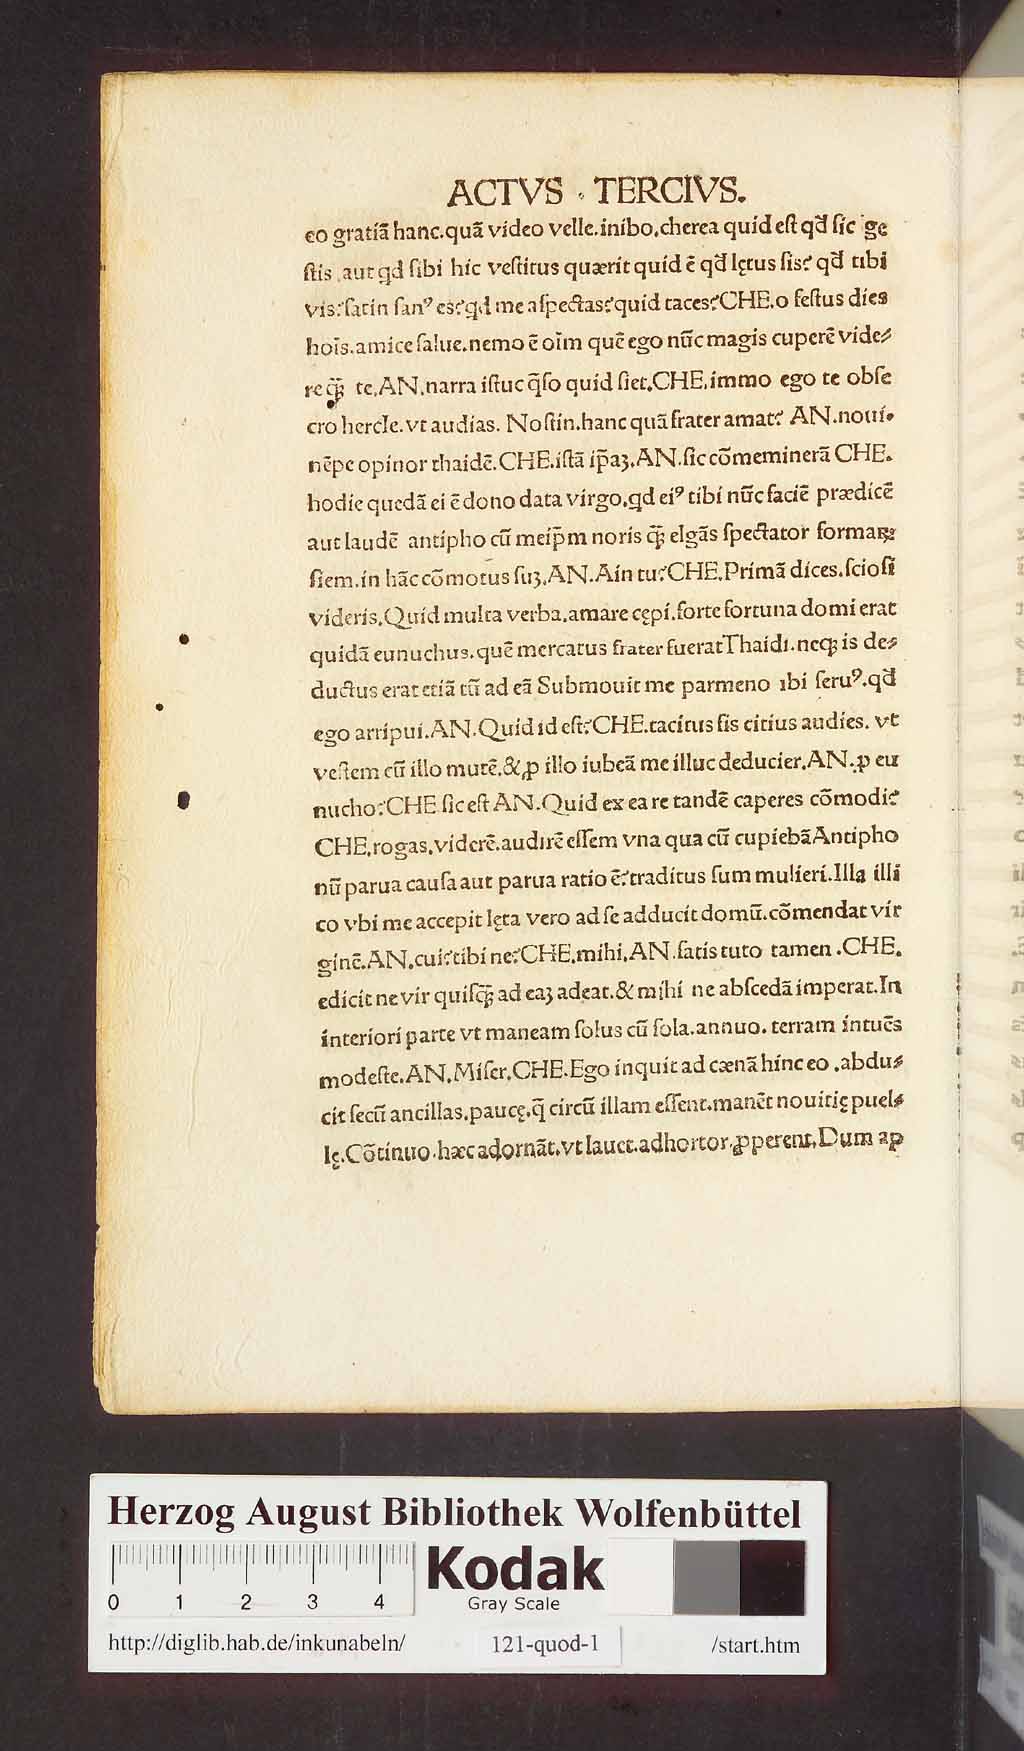 ACTVS · TERCIVS.
eo gratiā hanc.quā video velle.inibo.cherea quid eſt qd̄ ſic ge
ſtis aut qd ſibi hic veſtitus quærit quid ē qd̄ lętus ſis? qd̄ tibi
vis? ſatin ſanꝰ es? qd me aſpectas? quid taces? CHE.o feſtus dies
hoīs.amice ſalue.nemo ē oīm quē ego nūc magis cuperē vide⸗
re q̄ꝫ te.AN.narra iſtuc q̄ſo quid ſiet.CHE.immo ego te obſe
cro hercle.vt audias. Noſtin.hanc quā frater amat? AN.noui.
nēpe opinor thaidē.CHE.iſtā ip̄aꝫ.AN.ſic cōmeminerā CHE.
hodie quedā ei ē dono data virgo.qd eiꝰ tibi nūc faciē prædicē
aut laudē antipho cū meip̄m noris q̄ꝫ elgās ſpectator formaꝝ
ſiem.in hāc cōmotus ſuꝫ.AN.Ain tu? CHE.Primā dices.ſcio ſi
videris.Quid multa verba.amare cępi.forte fortuna domi erat
quidā eunuchus.quē mercatus frater fuerat Thaidi.neqꝫ is de⸗
ductus erat etiā tū ad eā Submouit me parmeno ibi ſeruꝰ.qd̄
ego arripui.AN.Quid id eſt? CHE.tacitus ſis citius audies. vt
veſtem cū illo mutē.&ꝓ illo iubeā me illuc deducier.AN.ꝓ eu
nucho? CHE ſic eſt AN.Quid ex ea re tandē caperes cōmodi?
CHE.rogas.viderē.audirē eſſem vna qua cū cupiebā Antipho
nū parua cauſa aut parua ratio ē? traditus ſum mulieri.Illa illi
co vbi me accepit lęta vero ad ſe adducit domū.cōmendat vir
ginē.AN.cui? tibi ne? CHE.mihi.AN.ſatis tuto tamen .CHE.
edicit ne vir quiſq̄ꝫ ad eaꝫ adeat.& mihi ne abſcedā imperat.In
interiori parte vt maneam ſolus cū ſola.annuo. terram intuēs
modeſte.AN.Miſer.CHE.Ego inquit ad cænā hinc eo .abdu⸗
cit ſecū ancillas.paucę.q̄ circū illam eſſent.manēt nouitię puel⸗
lę.Cōtinuo.hæc adornāt.vt lauet.adhortor.ꝓperent.Dum ap
Herzog August Bibliothek Wolfenbüttel
0 1 2 3 4
Kodak
Gray Scale
http://diglib.hab.de/inkunabeln/ 121-quod-1 /start.htm